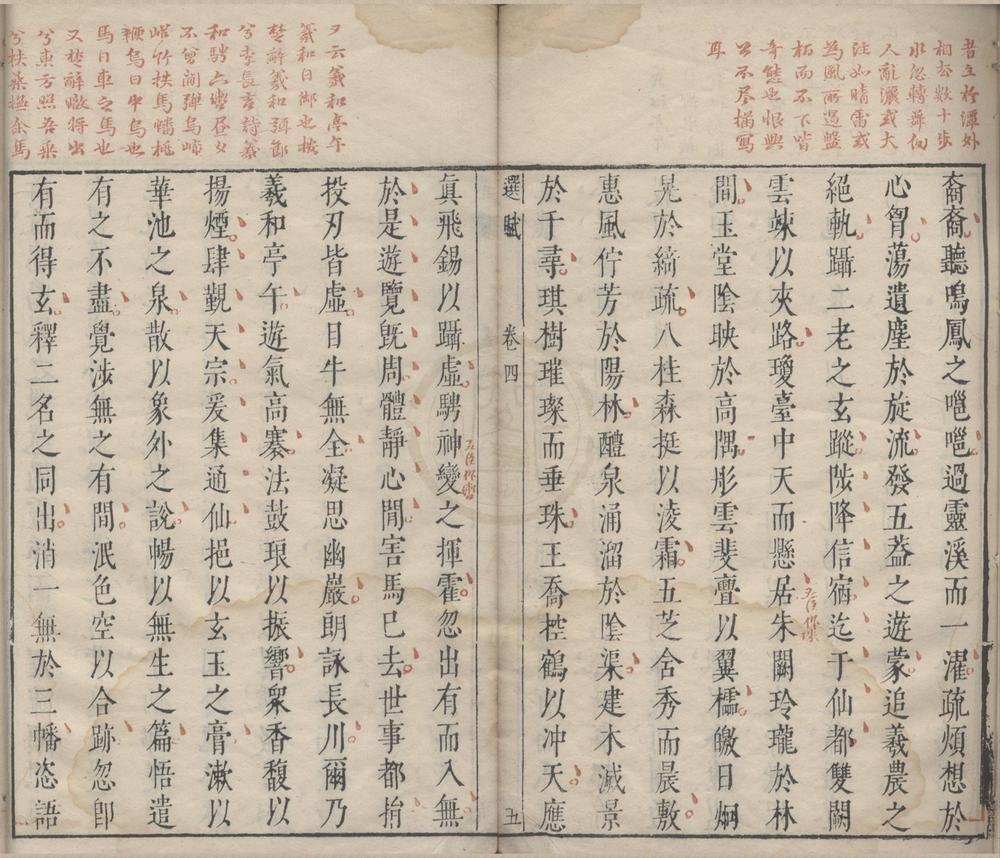 者立於潭外
相去數十步
水忽轉舞向
人亂灑或大
注如晴雷或
為風所遏盤
桓而不下皆
奇態也恨興
公不尽描寫
耳
裔裔聽鳴鳳之嗈嗈過靈溪而一濯疏煩想於
心胷蕩遺塵於旋流發五葢之遊蒙追羲農之
絕軌躡二老之玄蹤陟降信宿迄于仙都雙闕
雲竦以夾路瓊臺中天而懸居朱闕玲瓏於林
間玉堂陰映於高隅彤雲斐亹以翼櫺皦日炯
晃於綺疏八桂森挺以淩霜五芝含秀而晨敷
惠風佇芳於陽林醴泉涌溜於陰渠建木滅景
於千尋琪樹璀璨而垂珠王喬控鶴以沖天應
選賦 卷四 五
夕云羲和亭午
羲和日御也按
楚辭羲和弭節
兮李長吉詩羲
和騁六轡晝夕
不曾閒彈烏崦
嵫竹抶馬蟠桃
鞭烏日中烏也
馬日車之馬也
又楚辭暾將出
兮東方照吾
兮扶桑撫余馬
眞飛錫以躡虛騁神變之揮霍忽出有而入無
於是遊覽旣周體靜心閒害馬已去世事都捐
投刃皆虛目牛無全凝思幽巖朗詠長川爾乃
羲和亭午遊氣高褰法鼓琅以振響衆香馥以
揚煙肆覲天宗爰集通仙挹以玄玉之膏漱以
華池之泉散以象外之說暢以無生之篇悟遣
有之不盡覺涉無之有間泯色空以合跡忽卽
有而得玄釋二名之同出消一無於三幡恣語